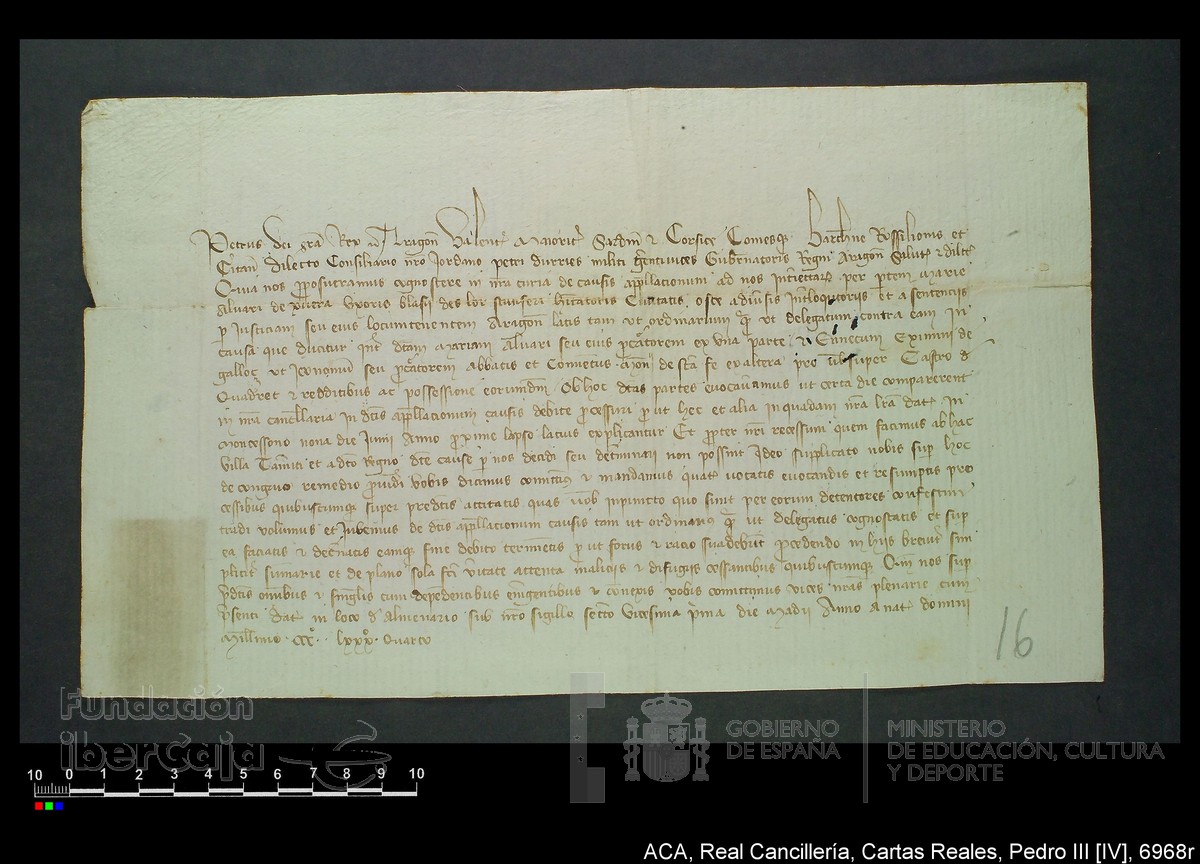 Petrus dei gra Rex Aragon Valent Maioric Sardin et Corsice Comesq Barchne Rossilionis et
Ceritan dilecto Consiliario nro Jordano petri durries militi gerentivices Gubernatoris Regni Aragon Salut et dilec
Quia nos proposueramus cognoscere in nra curia de causis appellacionum ad nos interiectarum per ptem Marie
Alvari de uxoris blasii des lor scutiferi habitatoris Civitatis osce adversus interloqutorijs et a sentencijs
p Justiciam seu eius locumtenentem Aragon latis tam ut ordinarium q ut delegatum contra eam in
causa que ducitur int dcam Mariam Alvari seu eius pcuratorem ex una parte et Enecum Eximini de
galloc ut Iconomum seu pcuratorem abbatis et Conventus de fe ex altera pro super Castro d
Quadret et redditibus ac possessione eorumdm Ob hoc dcas partes evocavimus ut certa die comparerent
in nra cancellaria in dcis appellacionum causis debite processuri p ut hec et alia in quadam nra lra dat in
Montessono nona die Junij Anno proxime lapso lacius explicantur Et propter nri recessum quem facimus ab hac
villa Tamiti et a dcto Regno dce cause p nos decidi seu determinari non possint Ideo supplicato nobis sup hoc
de congruo remedio provideri vobis dicimus comittimus et mandamus quat vocatis evocandis et resumptis pro
cessibus quibuscumq super predcis actitatis quas vob inpuncto quo sunt per eorum detentores confestim
tradi volumus et Jubemus de dcis appellacionum causis tam ut ordinarius q ut delegatus cognoscatis et sup
ea faciatis et decernatis eamq fine debito terminetis p ut forus et racio suadebunt procedendo in hijs brevit sim
plicit sumarie et de plano sola fcti veritate attenta malicijs et difugijs cessantibus quibuscumq Qm nos sup
pdcis omnibus et singulis cum dependentibus emergentibus et conexis vobis comittimus vices nras plenarie cum
psenti dat in loco d Almenario sub nro sigillo secreto vicesima prima die Madii Anno a nat domini
Millimo CCC lxxx quarto
16
Fundación
iberCaja
GOBIERNO
DE ESPAÑA
MINISTERIO
DE EDUCACIÓN, CULTURA
Y DEPORTE
10 0 1 2 3 4 5 6 7 8 9 10
ACA, Real Cancillería, Cartas Reales, Pedro III [IV], 6968r